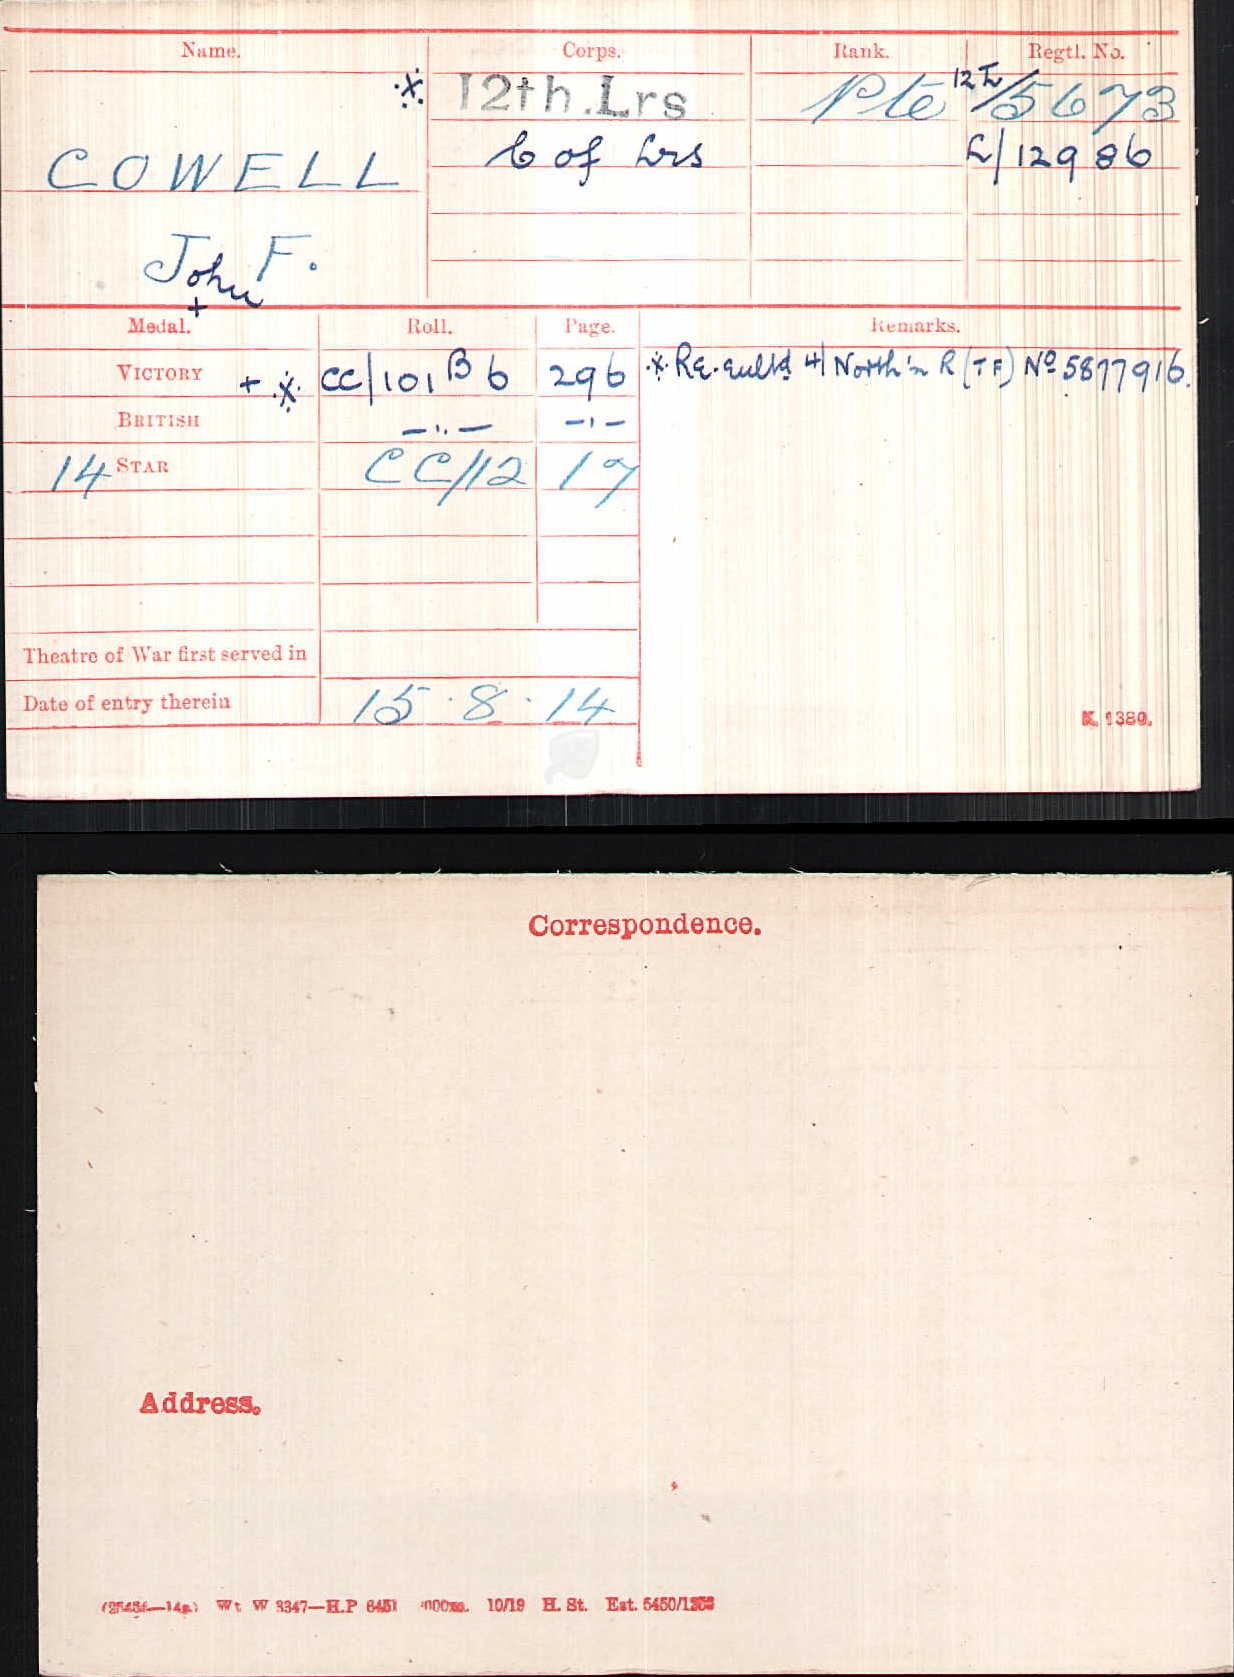 Name. Corps. Rank. Regtl. No.
* 12th.Lrs Pte 12L/5673
COWELL C of Lrs L/12986
John F.
+
Medal. Roll. Page. Remarks.
VICTORY + * CC/101 B 6 296 * Re-enlstd 4/ North'n R (TF) No 5877916.
BRITISH —"— —"—
14 STAR CC/12 17
Theatre of War first served in
Date of entry therein 15.8.14
K. 1380.
Correspondence.
Address.
Wt W 3347—H.P 6451 10/19 H. St. Est. 5450/